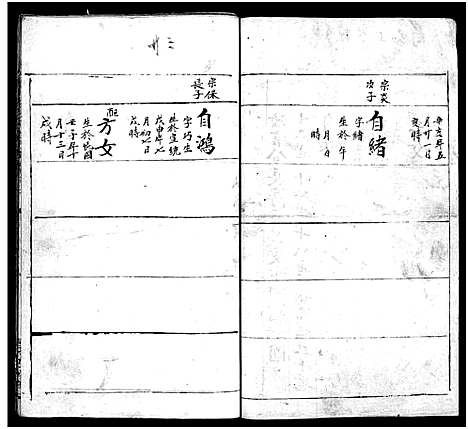 宗炎
次子
辛亥年五
月廿一日
亥時
自緒
字緒
生於午
月 日
時
三
廿
宗保
長子
自鴻
字巧生
生於宣統
戊申年七
月初七日
戌時
配
方女
生於民国
壬子年十
月十三日
戌時